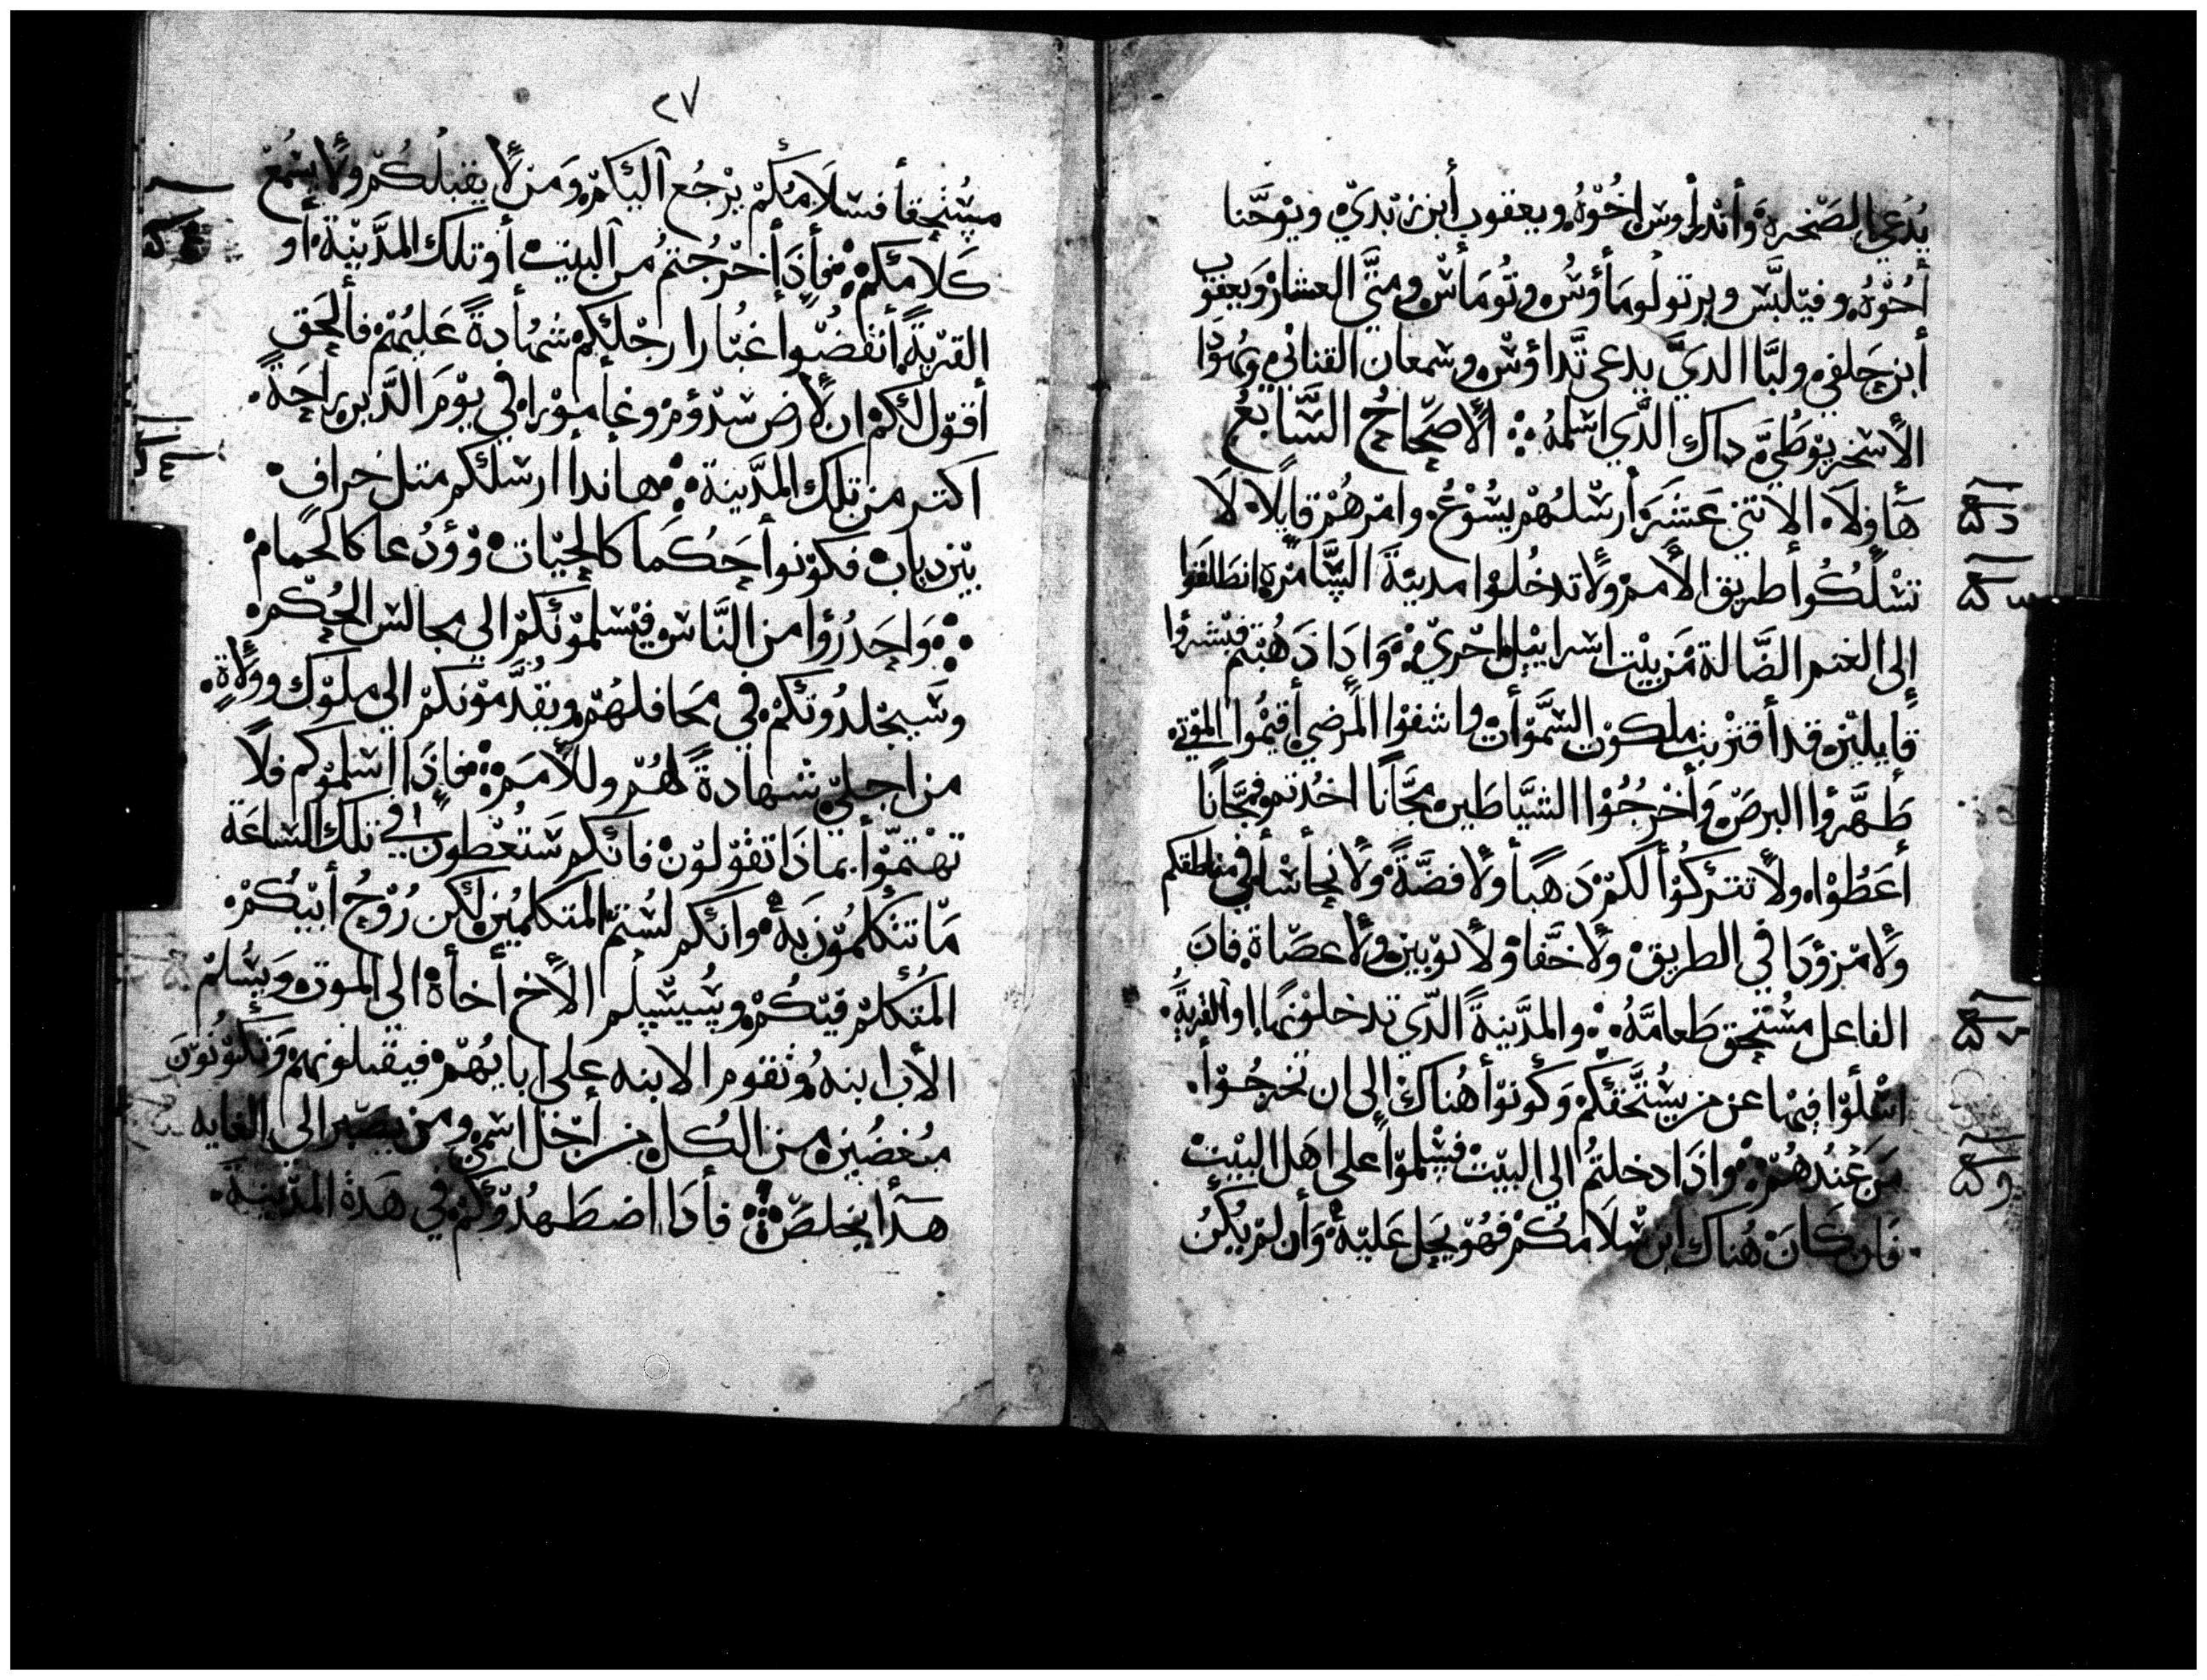 يُدعي الصَخره وَأندراوس اخُوّهُ ويعقوب أبن زبديّ ويوحَّنا
أخُوّهُ وفيَلبَّس وبرتولُومَأؤسُ وتُومَأس ومتَّي العشار وَيعقوب
أبن حَلفي ولبَّا الديَّ يدعي تَّداؤسْ وسمعان القناني ويهودا
الأسخريوُطيَّ داك الدَّي اسلمهُ الأصحَاحُ السَّابعُ
هَأولاَه الاتني عَشَرَ أرسَلهُمْ يسُوْعُ وامرَهُمْ قايلاً لاَ
تسْلُكُوا طريق الأمم ولاَ تدخُلوُا مدينَة السَّامَرة انطَلقوُا
إلي الغنم الضَّالة مَن بيْت اسراييل احْريّ وَإدَا دَهبْتم فبَشروُا
قايليَن قد أقتربت ملكوْت السَّموَأت واشفوا المُرضي أقيمُوا الموتي
طَهَّروُا البرصْ وَأخْرجُوْا الشيَّاطَين مجَّاناً اخدْتم فمجَّاناً
أعَطُوْا ولاَ تترَكوُا لكمْ دَهباً ولاَ فضَّةً ولاَ نحأسْاً في مناطقكم
ولاَ مزوْدَا في الطريق ولاَ خَّفاً ولاَ توبيَن ولاَ عصَاة فانَ
الفاعل مسْتحق طَعامَّهُ والمدَّينةً الدَّي تدخلوْنها او القريةَ
اسْألوْا فيها عن من يسْتَّحقكمْ وَكُونوْا هُناك إلي ان تخرجُوْأ
مَن عَندهُمْ واذَا دخلتُم الي البيَت فسْلموْا علي اهَل البيْت
فَان كَانَ هُناك ابن سْلاَمكُمْ فهُوْ يحَل عَليَهْ وَأن لمْ يكُنُ
٢٧
مسُتْحِقاً فسَلاَمُكُمْ يرْجُع آليكمْ وَمن لاَ يقبلكُمْ ولاَ يسْمُعْ
كَلامكم فأذَا أخرْجُتمُ من آلبيت أو تلك المدَّينْة أو
القريَة أنفضُوا غبُارا رجْلكمْ شهُادةً عَليهُمْ فألحَق
أقوْل لكمْ ان لاَرض سَدوْم وغأموْراه في يوْمَ الدَّين راحَة
اكتر من تلك المدَّينة هاندا ارسْلكم متل خراف
بيَن دياب فكوْنوا حَكُمَا كالحيَات وَوُدعا كالحَمام
وَاحَدرُوا من النَّاس فيسْلموْنكمْ الي مجالسْ الحُكمْ
وسَيجْلدُونكمْ في مَحافلهُمْ ويقُدَّموْنكمْ الي ملوْك وولاَة
من اجليْ شهادةً لهُمْ وللأمَم فإذَا اسْلموْكم فلاَ
تهتموْا بمَاذَا تقوْلوْن فانكم سَتعُطوْن في تلك السْاعَة
مَا تتكلموْن بهْ وانكم لسُتمْ المتكلميْن لكن رُوْحُ أبيْكُمْ
المُتكلمْ فيَكُمْ وسُيسْلم الأخ أخأهْ الي الموت ويَسْلمْ
الأب ابنهُ وتقوم الابنه علي اَبايهُمْ فيقتلونهمْ وَتكوْنُونَ
مبُغضُيْن من الكُل من أجَل اسْمي ومن يصَبر الي الغايه
هَدأ يخلصْ فأدَا اضطَهدُوْكمْ في هَدة المدْينةَ